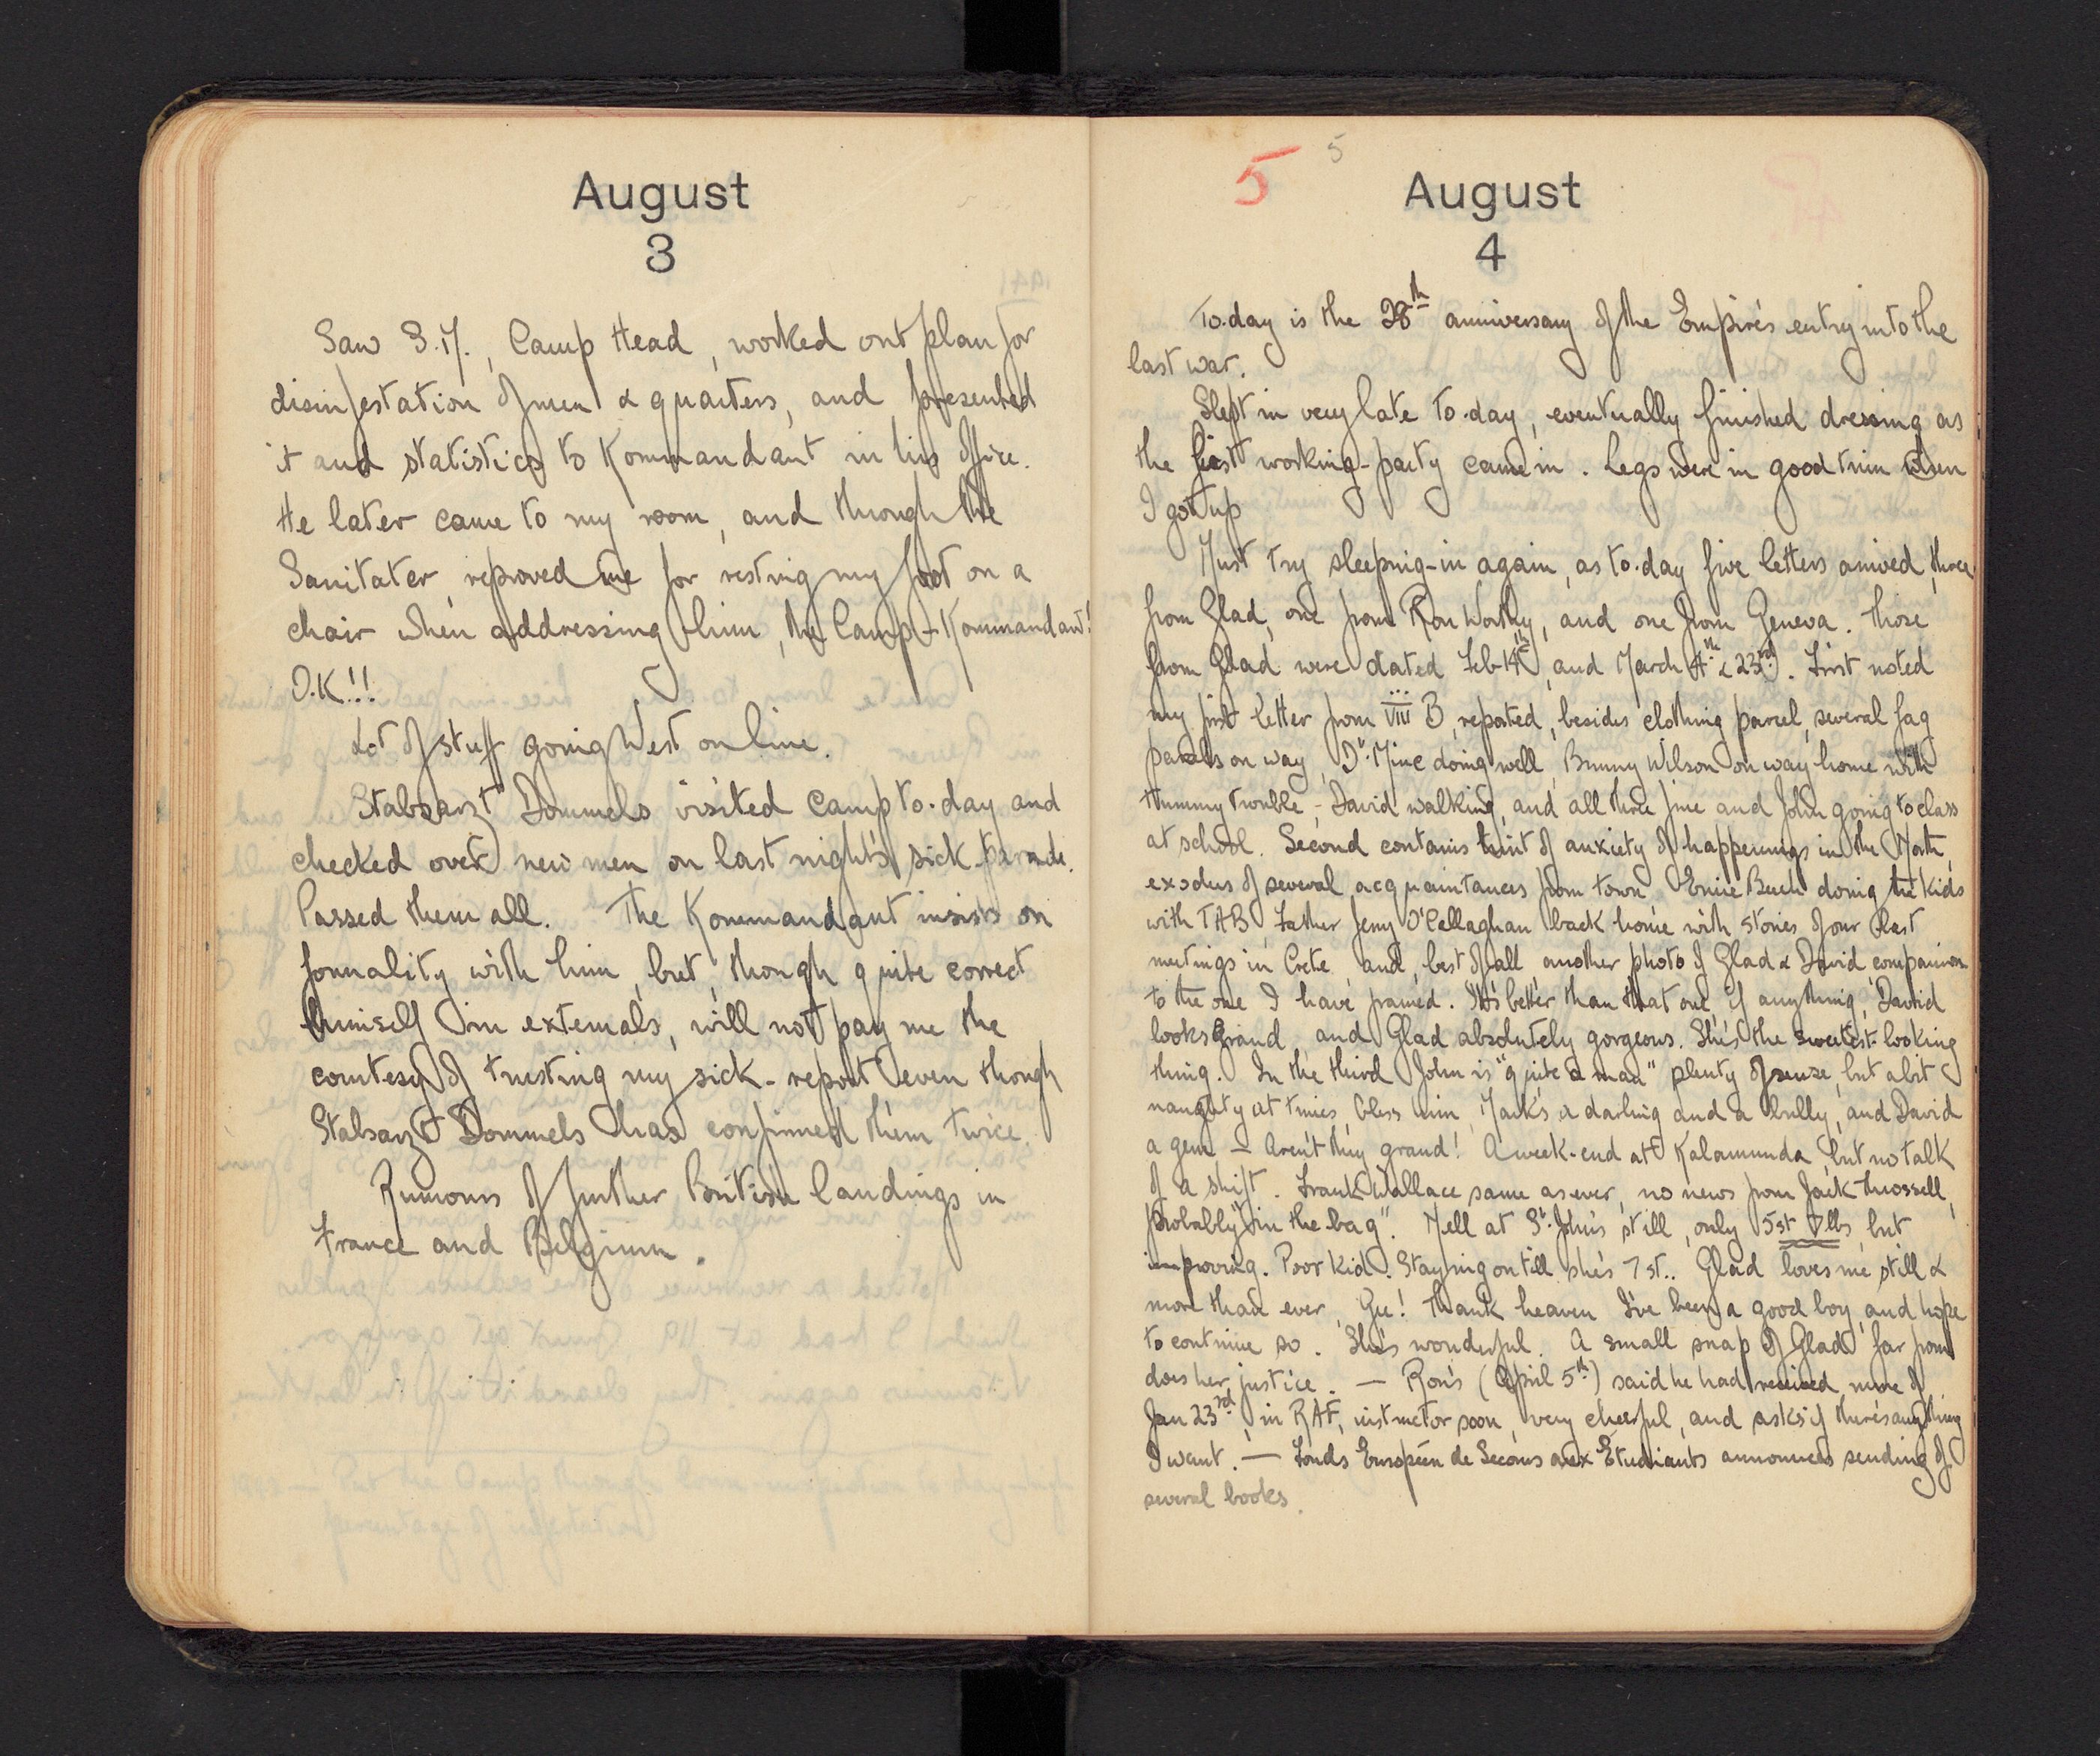 August
3
Saw S.M., Camp Head, worked out plan for
disinfestation of men & quarters, and presented
it and statistics to Kommandant in his office.
He later came to my room, and through the
Sanitater reproved me for resting my foot on a
chair when addressing him, the Camp-Kommandant!
O.K!!!
Lot of stuff going West on line.
Stabsarzt Dommels visited camp to-day and
checked over new men on last night's sick-parade.
Passed them all. The Kommandant insists on
formality with him, but, though quite correct
himself in externals, will not pay me the
courtesy of trusting my sick-report even though
Stabsarzt Dommels has confirmed them twice.
Rumours of further British landings in
France and Belgium.
5 5
August
4
To-day is the 28th anniversary of the Empire's entry into the
last war.
Slept in very late to-day, eventually finished dressing as
the first working-party came in. Legs were in good trim when
I got up
Must try sleeping-in again, as to-day five letters arrived, three
from Glad, one from Ron Worthy, and one from Geneva. Those
from Glad were dated Feb 14th, and March 4th & 23rd. First noted
my first letter from VIII B, reported, besides clothing parcel, several fag
parcels on way, Dr. Mine doing well, Bunny Wilson on way home with
tummy trouble, - David walking, and all three fine and John going to class
at school. Second contains hint of anxiety of happenings in the North,
exodus of several acquaintances from town Ernie Beech doing the kids
with TAB, Father Jerry O'Callaghan back home with stories of our last
meetings in Crete and, best of all, another photo of Glad & David, companion
to the one I have framed. It's better than that one, if anything, David
looks grand, and Glad absolutely gorgeous. She's the sweetest-looking
thing. In the third John is "quite a man" plenty of sense, but a bit
naughty at times, bless him, Mark's a darling and a bully, and David
a gem - Aren't they grand! A week-end at Kalamunda, but no talk
of a shift. Frank Wallace same as ever, no news from Jack Throssell,
probably "in the bag". Nell at St. John's still, only 5st 7 lbs, but
improving. Poor kid. Staying on till she's 7 st.. Glad loves me still &
more than ever, Gee! Thank heaven I've been a good boy, and hope
to continue so. She's wonderful. A small snap of Glad far from
does her justice. — Ron's (April 5th) said he had received mine of
Jan 23rd, in RAF, instructor soon, very cheerful, and asks if there's anything
I want. — Fonds Européen de Secours aux Etudiants announces sending of
several books.